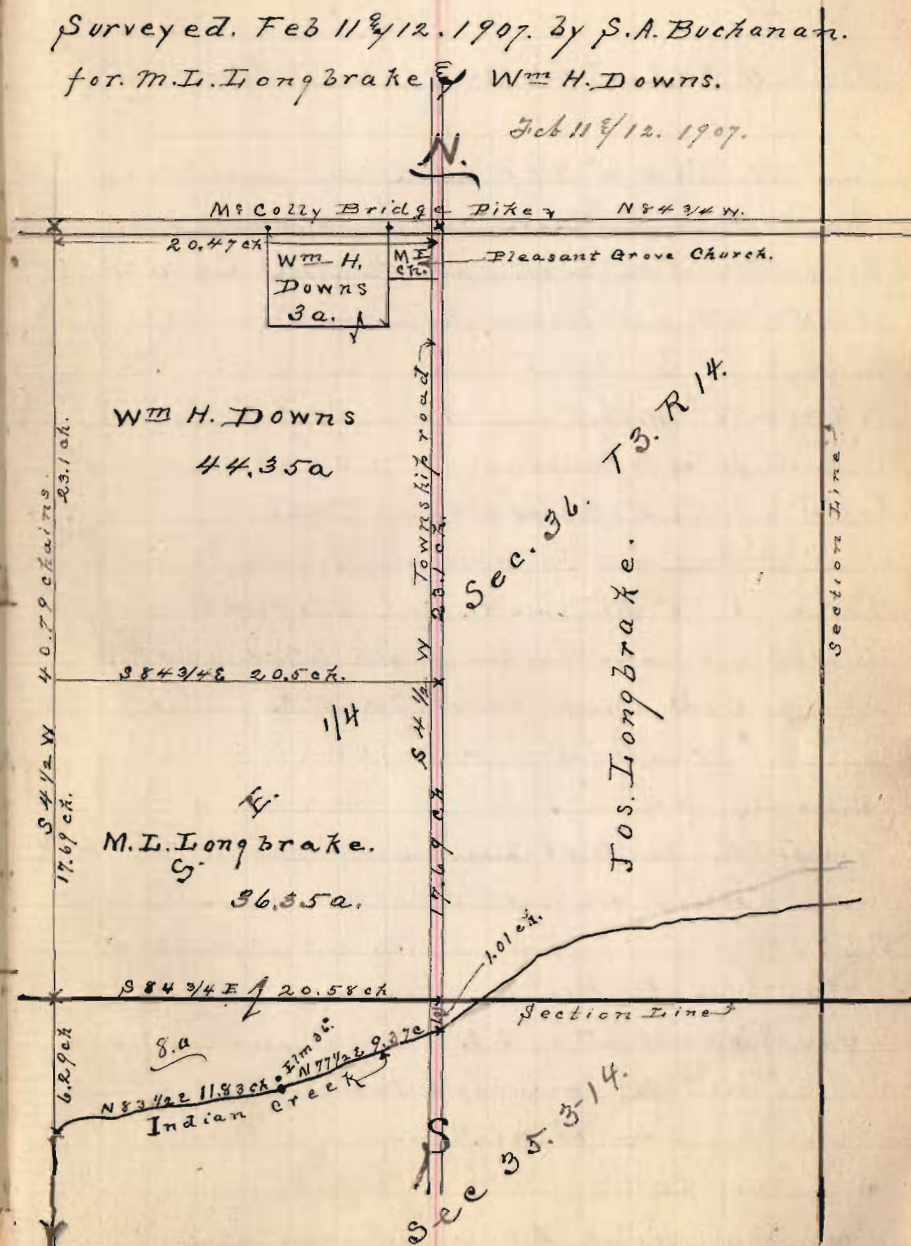 Surveyed. Feb 11 & 12. 1907. by S.A. Buchanan.
for. M.L. Longbrake & Wm H. Downs.
Feb 11 & 12. 1907.
N.
McColly Bridge Pike
N 84 3/4 W.
20.47 ch
Wm H.
Downs
3 a.
M E
ch.
Pleasant Grove Church.
Wm H. Downs
44.35a
Township road
S 4 1/2 W 23.1 ch.
Sec. 36. T3. R 14.
Jos. Longbrake.
Section Line
S 4 1/2 W 40.79 chains
23.1 ch.
S 84 3/4 E 20.5 ch.
S. E. 1/4
M.L. Longbrake.
36.35a.
17.69 ch.
17.69 ch
1.01 ch.
S 84 3/4 E 20.58 ch
Section Line
6.29 ch
8.a
Elm 36.
N 83 1/2 E 11.83 ch
N 77 1/2 E 9.37 c
Indian Creek
S
Sec 35. 3-14.